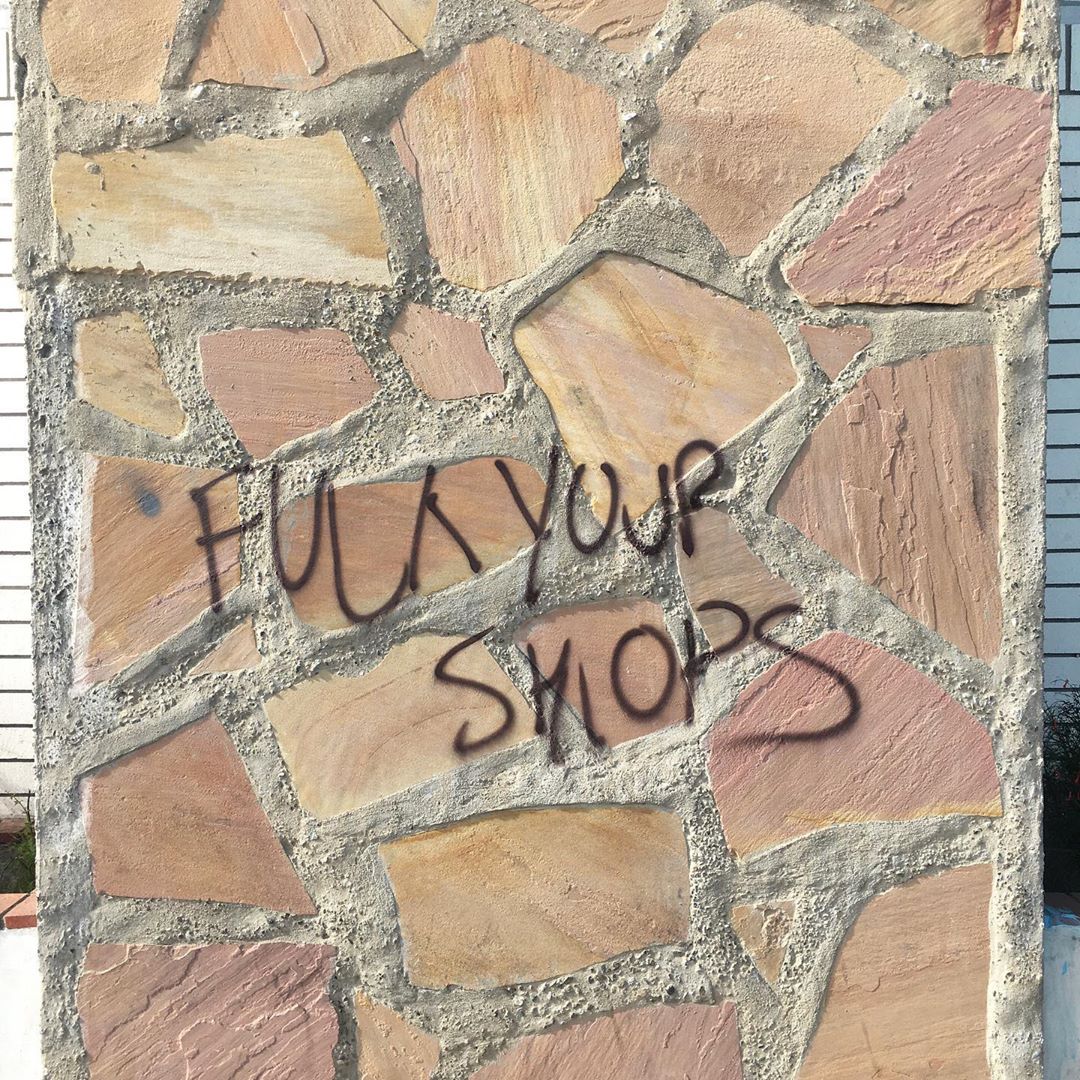 FUCK YOUR
SHOPS